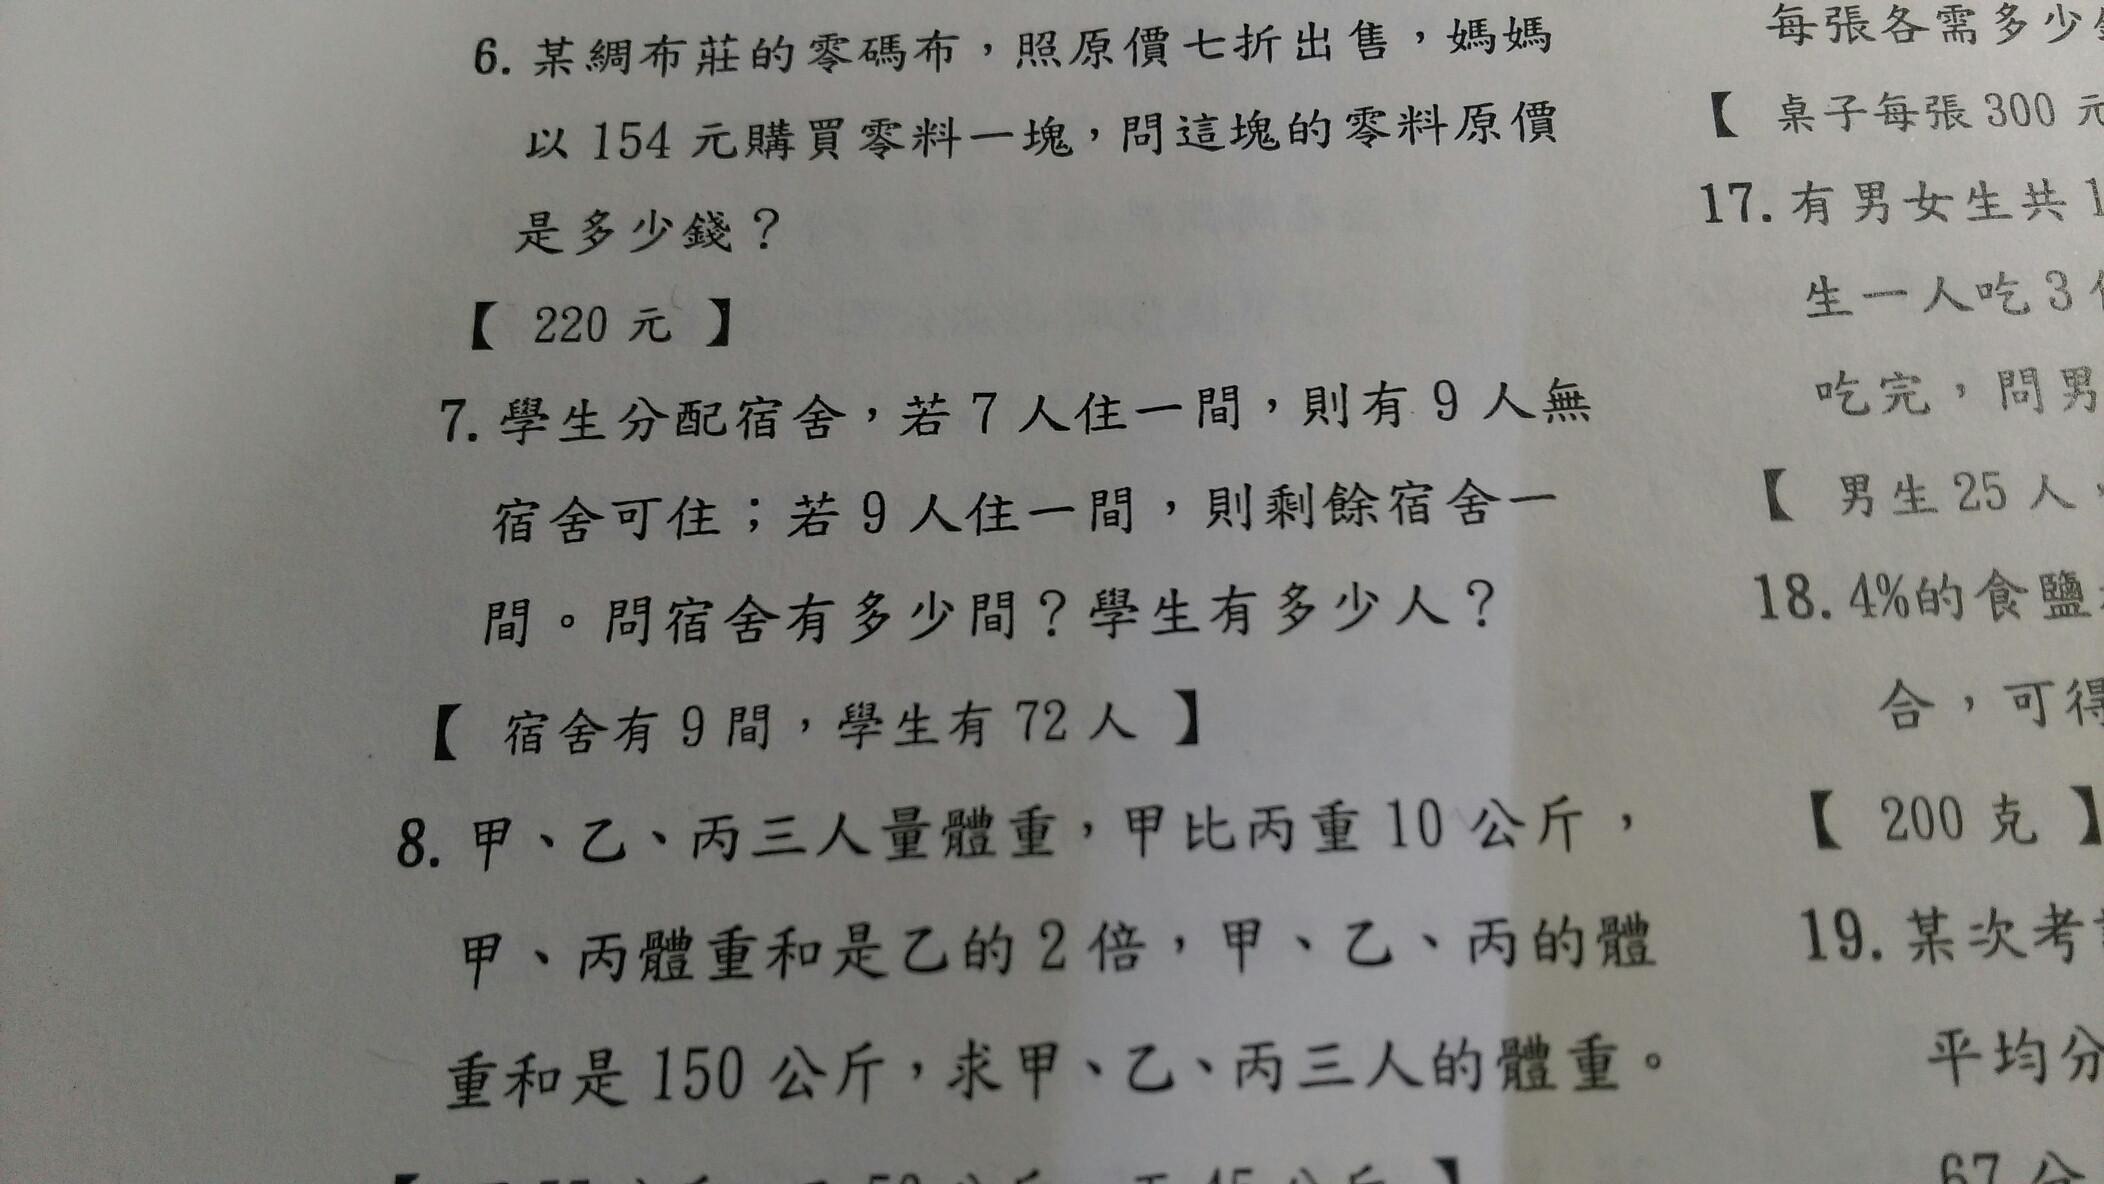 6. 某綢布莊的零碼布，照原價七折出售，媽媽
以 154 元購買零料一塊，問這塊的零料原價
是多少錢？
【 220 元 】
7. 學生分配宿舍，若 7 人住一間，則有 9 人無
宿舍可住；若 9 人住一間，則剩餘宿舍一
間。問宿舍有多少間？學生有多少人？
【 宿舍有 9 間，學生有 72 人 】
8. 甲、乙、丙三人量體重，甲比丙重 10 公斤，
甲、丙體重和是乙的 2 倍，甲、乙、丙的體
重和是 150 公斤，求甲、乙、丙三人的體重。
每張各需多少
【 桌子每張 300 元
17. 有男女生共 1
生一人吃 3
吃完，問男
【 男生 25 人，
18. 4%的食鹽
合，可得
【 200 克 】
19. 某次考
平均分
67 分